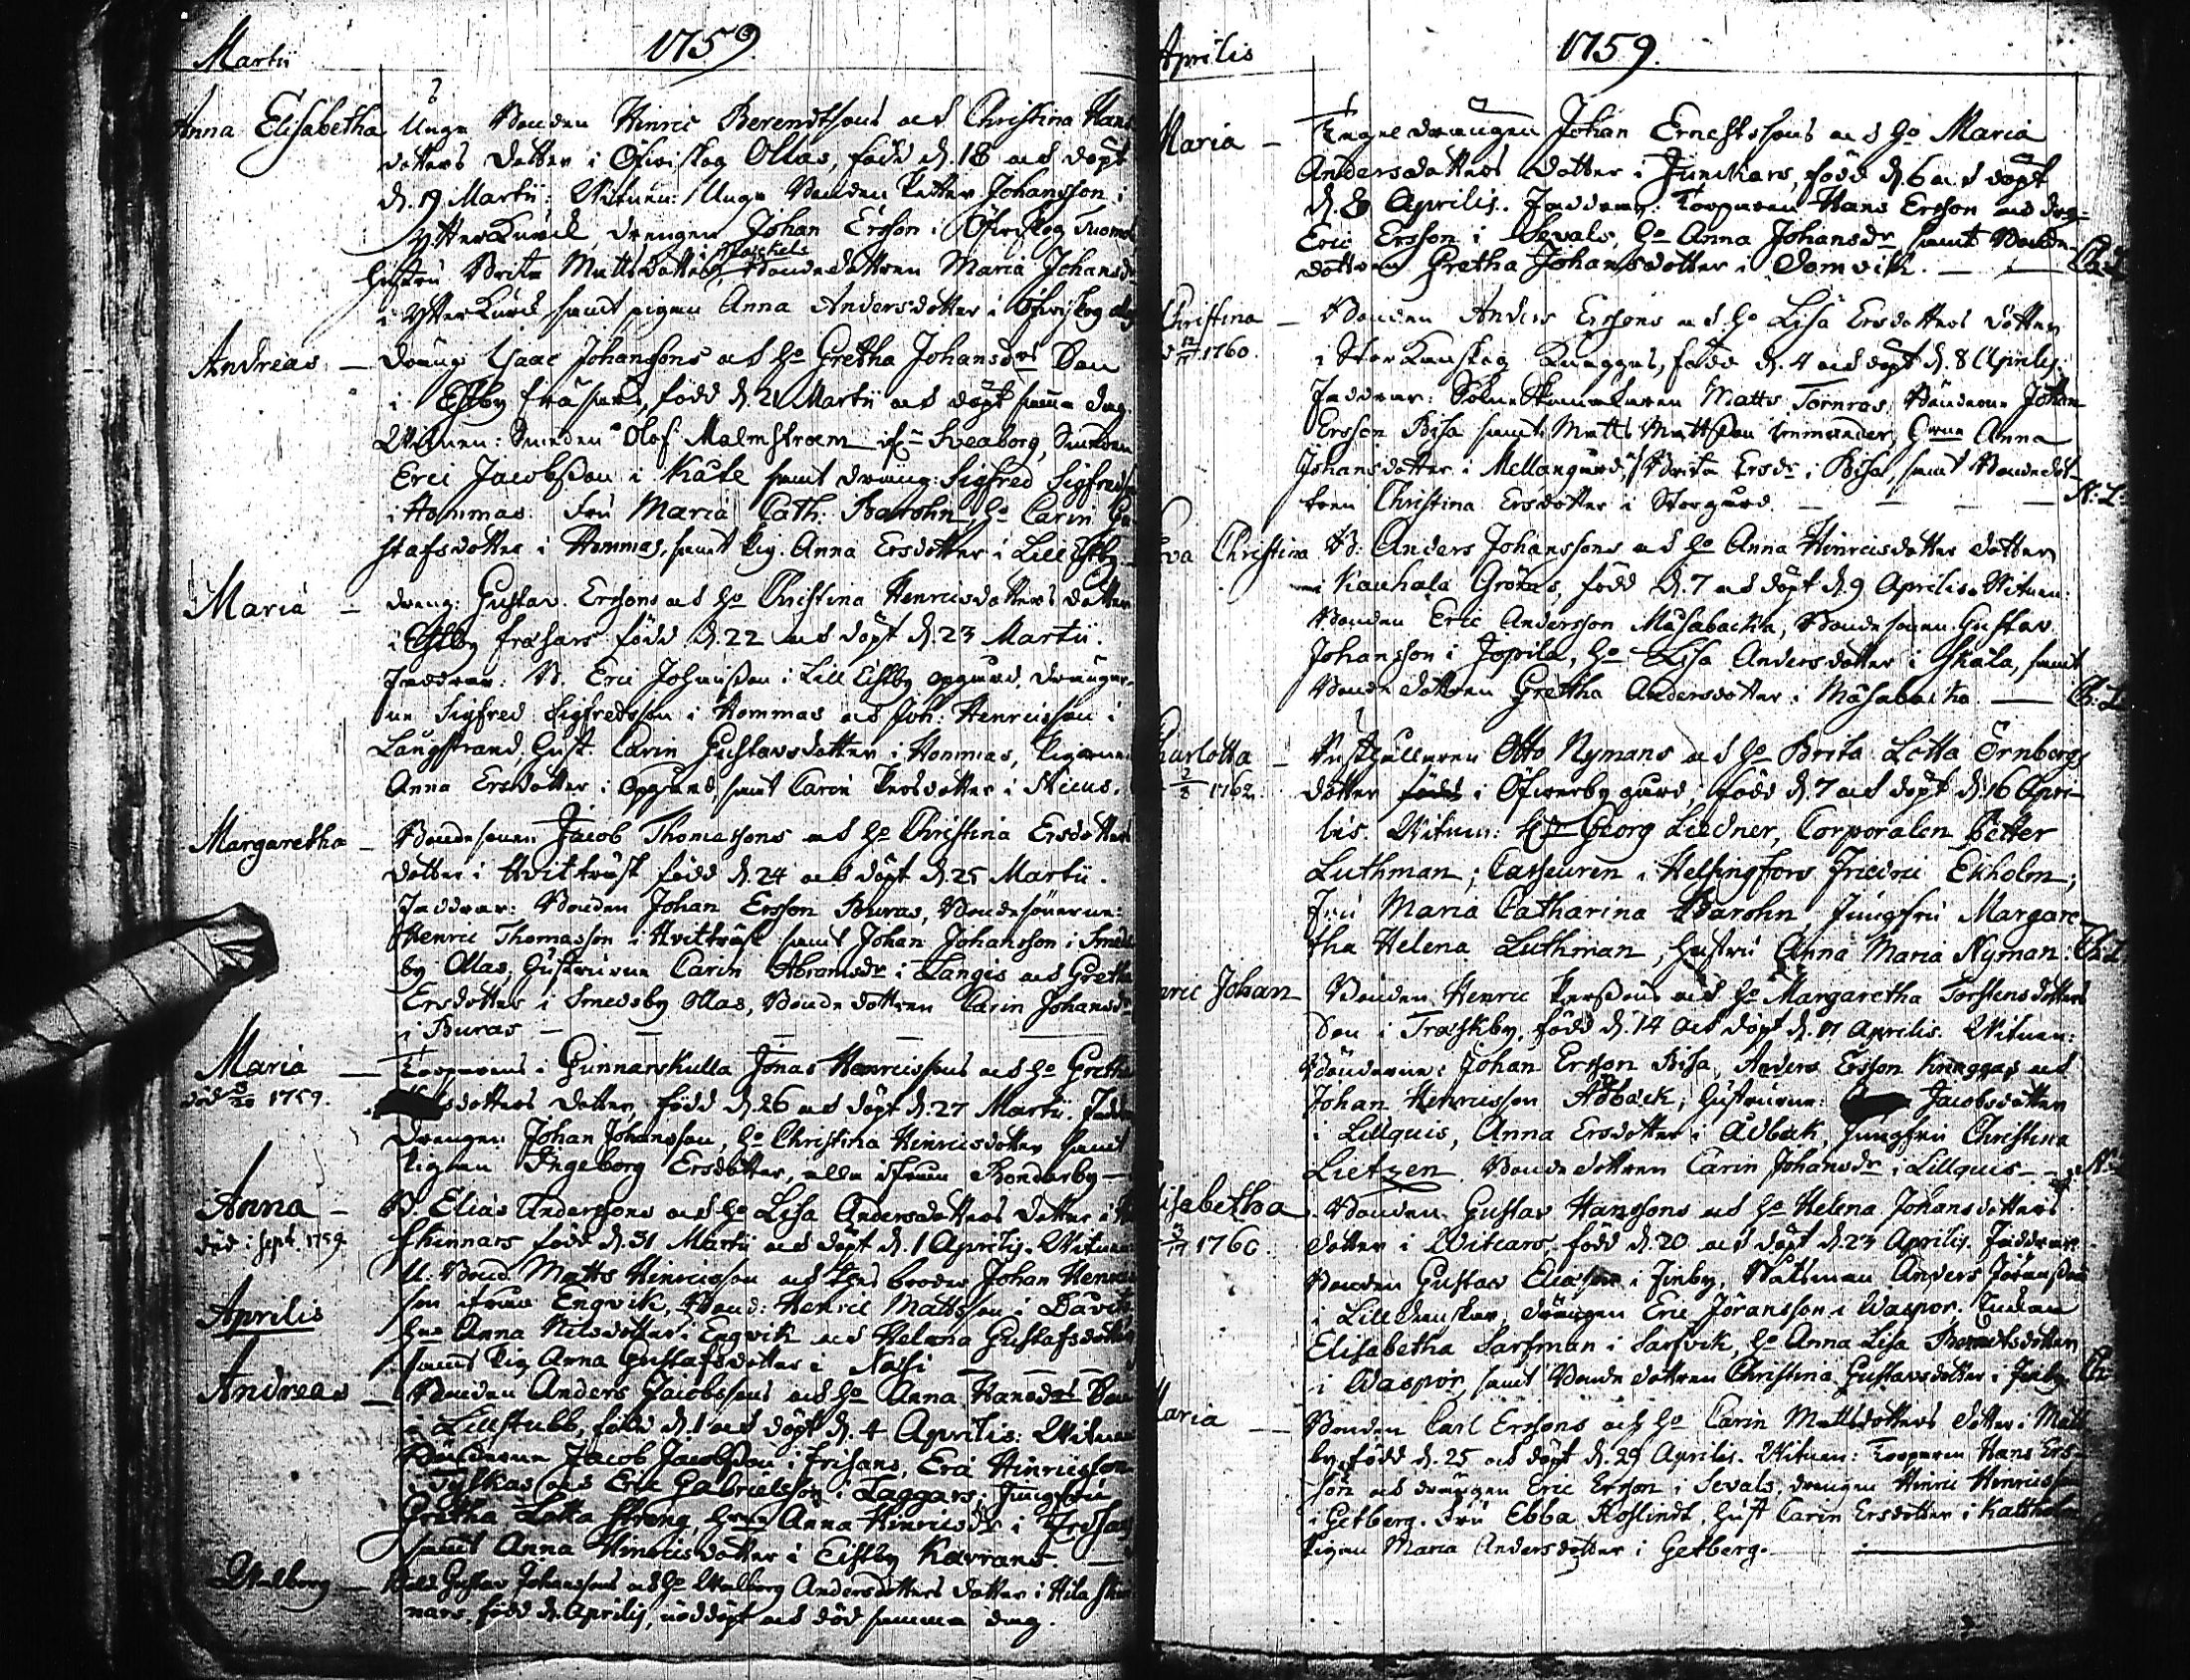 Martii 1759.
Anna Elisabetha Unga Bonden Hinric Berendtsons och Christina Hans
dotters dotter i Öfwerskog Ollas, född d. 18 och döpt
d. 19 Martii. Witnen: Unga Bonden Petter Johansson i
Ytter Kurck, drengen Johan Ersson i Öfwerskog
hustru Brita Mattsdotter, Bondedottren Maria Johansdr
i Ytter Kurck samt pigan Anna Andersdotter i Öfwerskog
Andreas — dräng Isaac Johanssons och ho Gretha Johansdrs Son
i Estby Fråsars, född d. 21 Martii och döpt samma dag.
Witnen: Smeden Olof Malmstroem Sveaborg,
Eric Jacobsson i Kåte samt dräng: Sigfred Sigfreds
i Hommas. Fru Maria Cath. Barohn, ho Carin Gu-
stafsdotter i Hommas, samt Pig. Anna Ersdotter i Lill
Maria — dreng: Gustav Erssons och ho Christina Henricsdotters dotter
i Estby Frasars född d. 22 och döpt d. 23 Martii.
Faddrar: B. Eric Johansson i Lill Estby opgård, drängar-
ne Sigfred Sigfredsson i Hommas och Joh: Henricsson i
Långstrand, Hust. Carin Gustavsdotter i Hommas, Pigorne
Anna Ersdotter i Opgård, samt Carin Persdotter i
Margaretha — Bondesonen Jacob Thomassons och ho Christina Ersdotters
dotter i Hvittrask född d. 24 och döpt d. 25 Martii.
Faddrar: Bonden Johan Ersson Buras, Bondesönerne:
Henric Thomasson i Hvittrask samt Johan Johansson i Smeds
by Ollas, Hustrurna Carin Abramsdr i Långis och Gretha
Ersdotter i Smedsby Ollas, Bondedottren Carin Johansdr
i Buras —
Maria — Torparens i Gunnarskulla Jonas Henricssons och ho Gretha
död 1759. dotters dotter, född d. 26 och döpt d. 27 Martii.
Drengen Johan Johansson, ho Christina Hinricsdotter samt
pigan Ingeborg Ersdotter, alla ifrån Bonderby —
Anna — B. Elias Anderssons och ho Lisa Andersdotters dotter i
död i Sept. 1759. Skinnars född d. 31 Martii och döpt d. 1 Aprilis. Witnen
U: Bond. Matts Hinricsson och hans broder Johan Henrics
son ifrån Engvik, Bond: Henric Mattsson i
Anna Nilsdotter i Engvik och Helena Gustafsdotter
samt Pig Anna Gustafsdotter i Nassi
Aprilis
Andreas — Bonden Anders Jacobssons och ho Anna Hansdrs Son
i Lillstubb, född d. 1 och döpt d. 4 Aprilis: Witnen
Bönderna Jacob Jacobsson i Frisans, Eric Hinricsson
och Eric Gabrielsson i Taggars; Jungfru
Gretha Lotta Streng, Anna Hinricsdr i Frisans
samt Anna Hinricsdotter i Eistby Kavrans —
Walborg — Gustav Johanssons och ho Walborg Andersdotters dotter i Hila Skin
nars, född d. Aprilis, nöddöpt och död samma dag.
Aprilis 1759.
Maria — drängen Johan Ernestssons och ho Maria
Andersdotters dotter i Junckars, född d. 6 och döpt
d. 8 Aprilis. Faddrar: Torparen Hans Ersson och
Eric Ersson i Sevals, ho Anna Johansdr samt Bonde-
dottren Gretha Johansdotter i Domvik. —
Christina — Bonden Anders Erssons och ho Lisa Ersdotters dotter
1760. i Stor Kanskog Knaggas, född d. 4 och döpt d. 8 Aprilis.
Faddrar: Matts Törnros, Bönderne Johan
Ersson Bisa samt Matts Mattsson Immander, Anna
Johansdotter i Mellangård, Brita Ersdr i Bisa, samt Bondedot-
tren Christina Ersdotter i Storgård. —
Eva Christina B: Anders Johanssons och ho Anna Hinricsdotter dotter
i Kauhala Grötas, född d. 7 och döpt d. 9 Aprilis. Witnen:
Bonden Eric Andersson Måsabacka, Bondesonen Gustav
Johansson i Jopila, ho Lisa Andersdotter i Skåla, samt
Bondedottren Gretha Andersdotter i Måsabacka —
Charlotta — Otto Nymans och ho Brita Lotta Örnbergs
1762. dotter i Öfwerbygård, född d. 7 och döpt d. 16 Apri-
lis. Witnen: Georg Liedner, Corporalen Petter
Luthman; Casseuren i Helsingfors Friedric Ekholm;
Fru Maria Catharina Barohn Jungfru Margare
tha Helena Luthman, hustru Anna Maria Nyman:
Henric Johan — Bonden Henric Perssons och ho Margaretha Torstensdotters
Son i Traskby, född d. 14 och döpt d. 17 Aprilis. Witnen:
Bönderne: Johan Ersson Bisa, Anders Ersson Knaggas och
Johan Henricsson Åbåck, Hustrurne: Jacobsdotter
i Lillquis, Anna Ersdotter i Ådbak, Jungfru Christina
Lietzen. Bondedottren Carin Johansdr i Lillquis —
Elisabetha Bonden Gustav Hanssons och ho Helena Johansdotters
1760. dotter i Witcars, född d. 20 och döpt d. 23 Aprilis. Faddrar
Bonden Gustav Eliasson i Finby, Båtsman Anders Johansson
i Lill, drängen Eric Jöransson i Waspor.
Elisabetha Sarfman i Sarfvik, ho Anna Lisa Berndtsdotter
i Waspor, samt Bondedottren Christina Gustavsdotter i Finby
Maria — Bonden Carl Erssons och ho Carin Mattsdotters dotter i
by, född d. 25 och döpt d. 29 Aprilis. Witnen: Torparen Hans Ers-
son och drängen Eric Ersson i Sevals, drengen Hinric Henricsson
i Getberg. Fru Ebba Roslindt, Hust Carin Ersdotter i Kattholm
Pigan Maria Andersdotter i Getberg. —